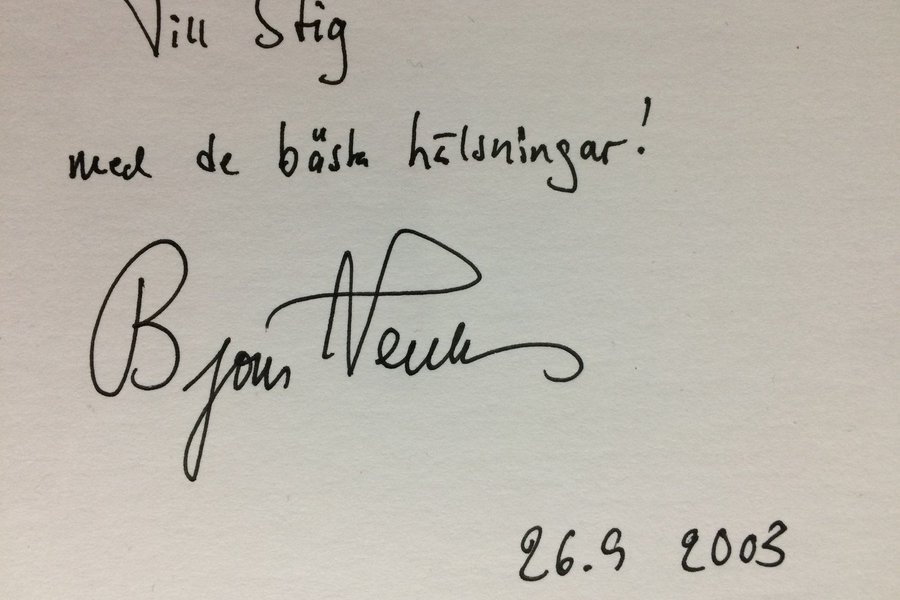 Till Stig
med de bästa hälsningar!
Bjorn
26.9 2003